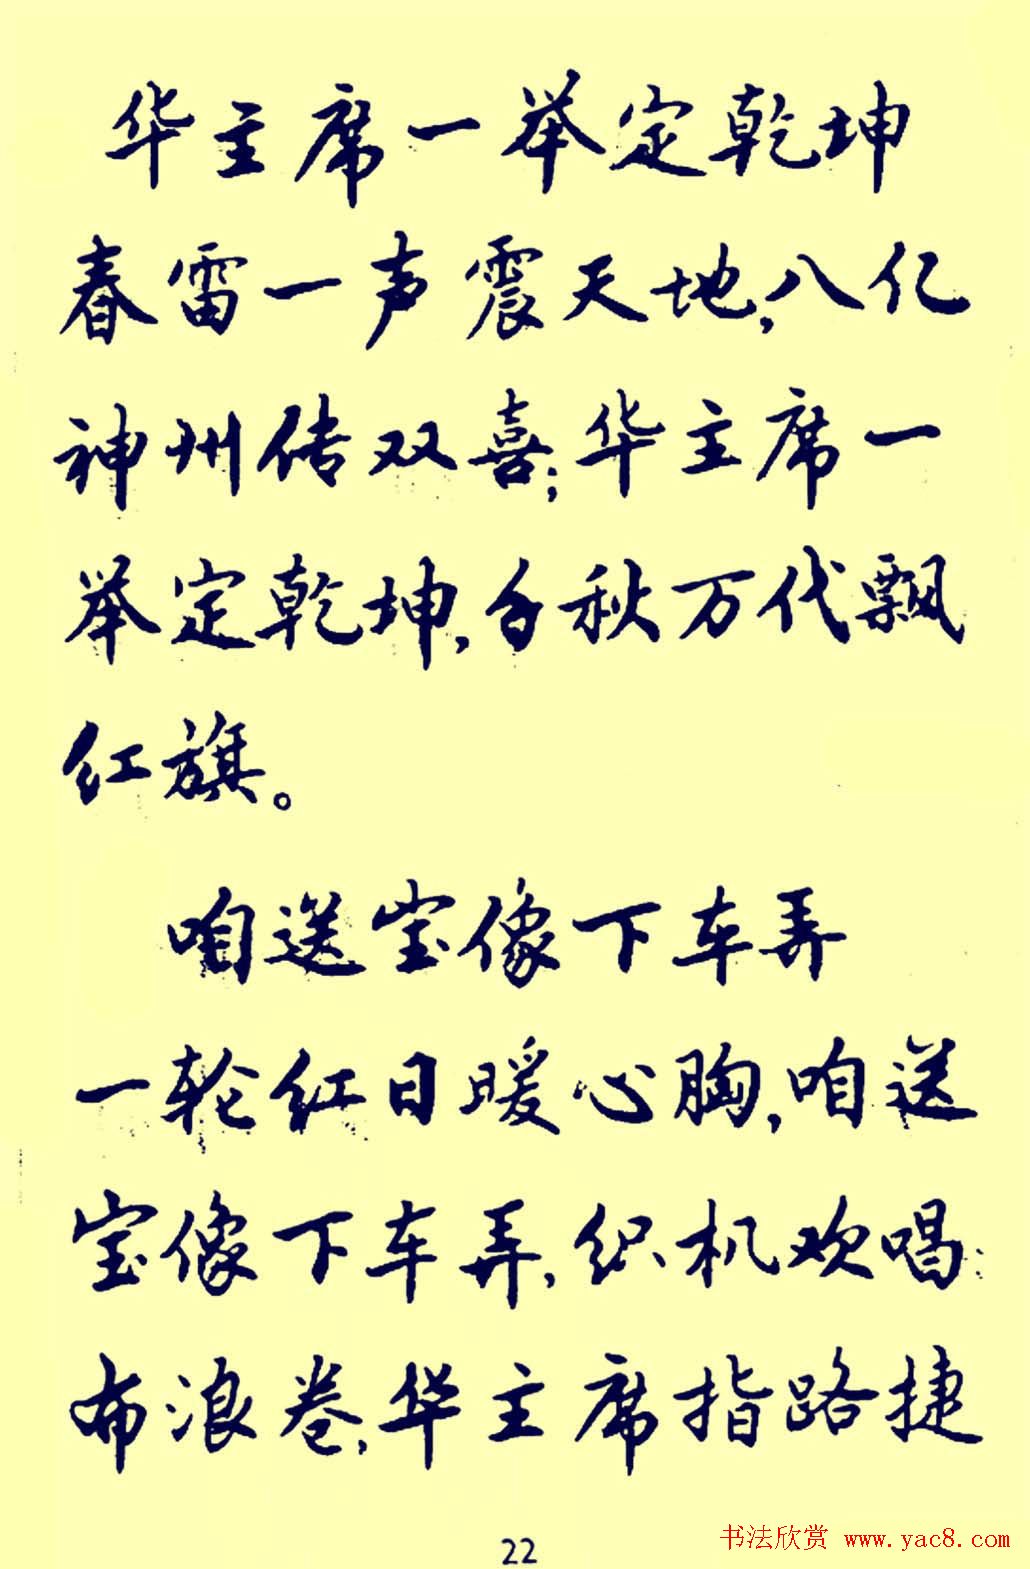 华主席一举定乾坤
春雷一声震天地,八亿
神州传双喜;华主席一
举定乾坤,千秋万代飘
红旗。
咱送宝像下车弄
一轮红日暖心胸,咱送
宝像下车弄,织机欢唱
布浪卷,华主席指路捷
22
书法欣赏 www.yac8.com